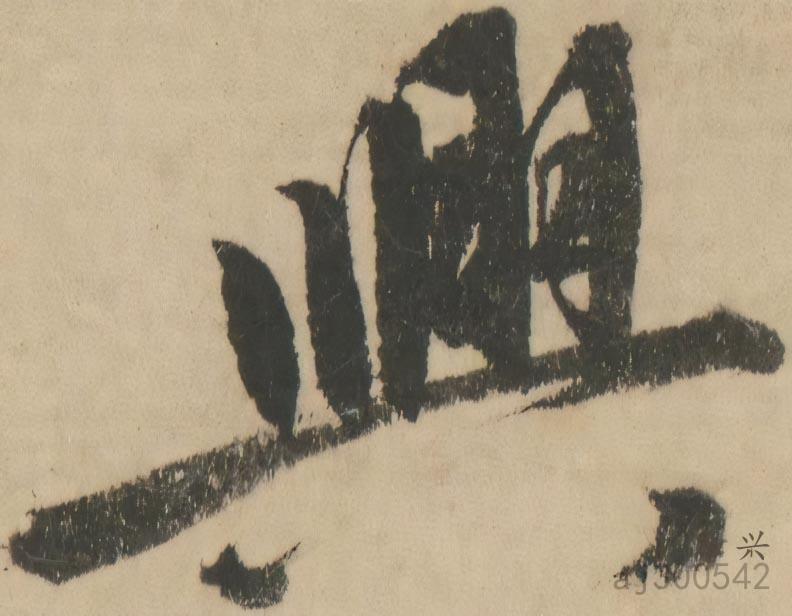 興
兴
aj300542